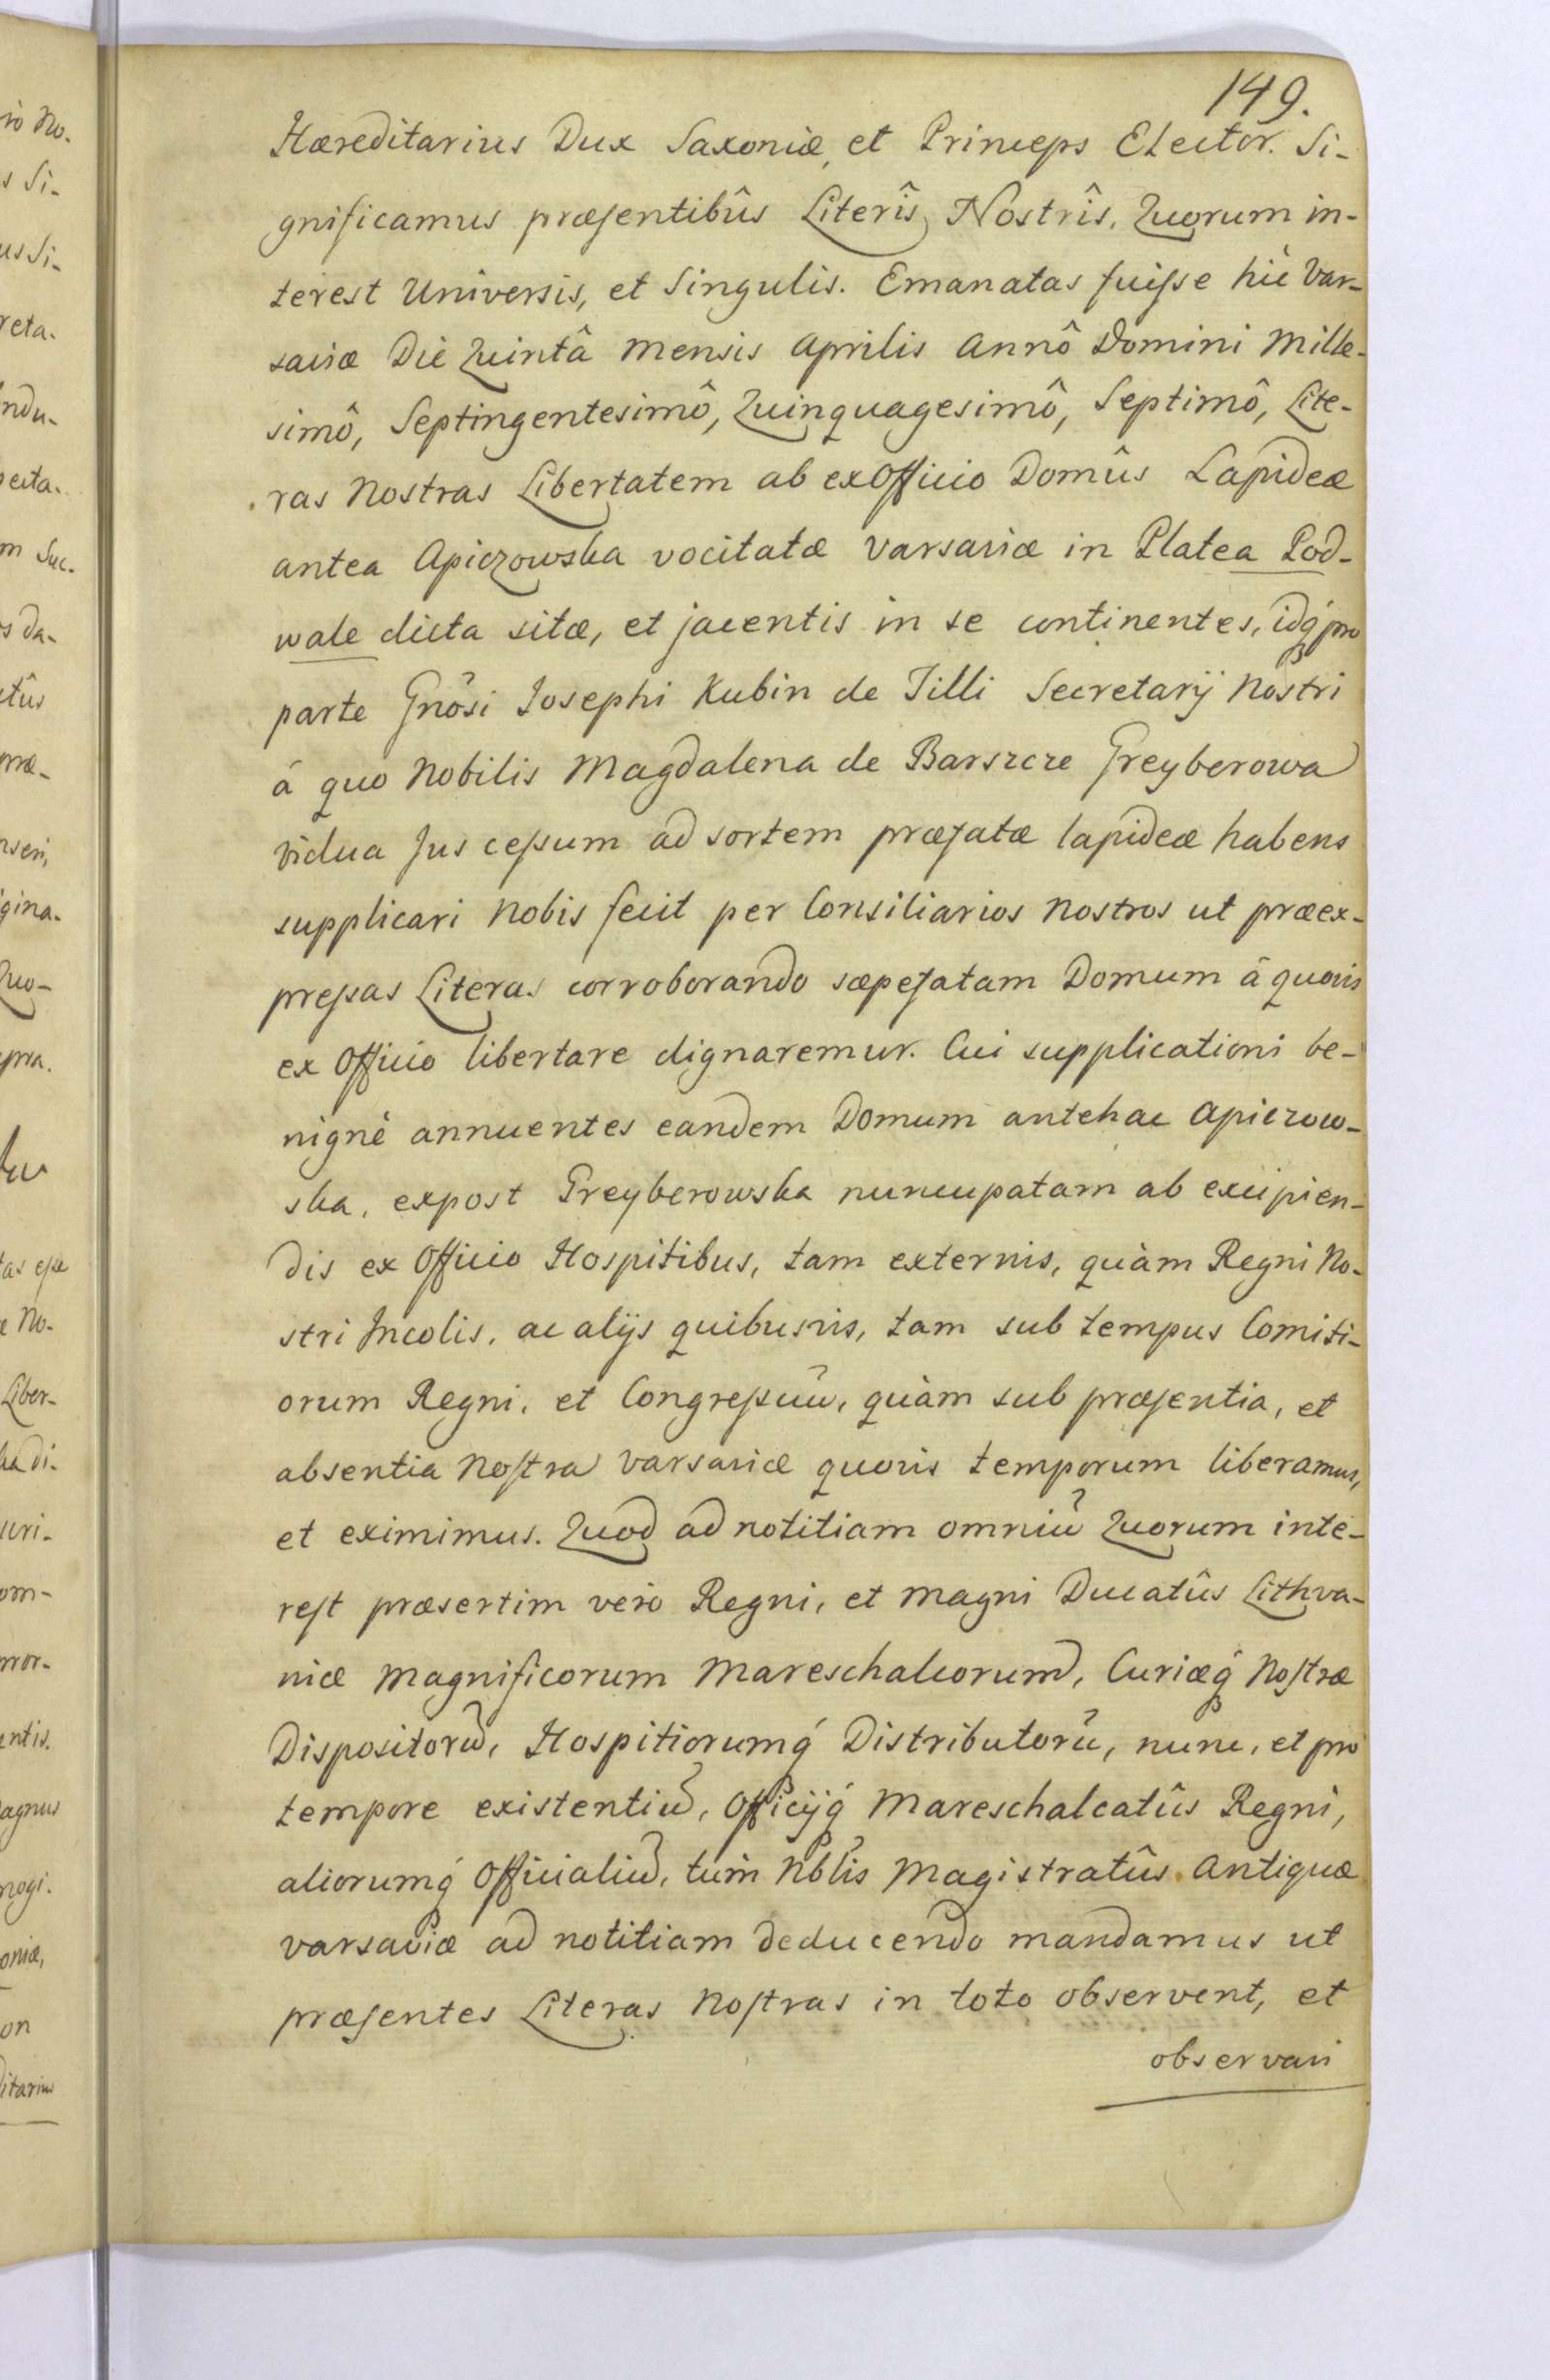 149.
Hæreditarius Dux Saxoniæ, et Princeps Elector. Si-
gnificamus præsentibûs Literîs Nostrîs, Quorum in-
terest Universis, et Singulis. Emanatas fuisse hìc Var-
saviæ Die Quintâ Mensis Aprilis Annô Domini Mille-
simô, Septingentesimô, Quinquagesimô, Septimô, Lite-
ras Nostras Libertatem ab ex Officio Domûs Lapideæ
antea Apiczowska vocitatæ Varsaviæ in Platea Pod-
wale dicta sitæ, et jacentis in se continentes, idq́ pro
parte Gnôsi Josephi Kubin de Tilli Secretarij Nostri
á quo Nobilis Magdalena de Barszcze Greyberowa
vidua Jus cessum ad sortem præfatæ lapideæ habens
supplicari Nobis fecit per Consiliarios Nostros ut præex-
pressas Literas corroborando sæpefatam Domum á quovis
ex Officio libertare dignaremur. Cui supplicationi be-
nignè annuentes eandem Domum antehac Apiczow-
ska, expost Greyberowska nuncupatam ab excipien-
dis ex Officio Hospitibus, tam externis, quàm Regni No-
stri Incolis, ac alijs quibusvis, tam sub tempus Comiti-
orum Regni, et Congressuũ, quàm sub præsentia, et
absentia Nostra Varsaviæ quovis temporum liberamus,
et eximimus. Quod ad notitiam omniũ Quorum inte-
rest præsertim verò Regni, et Magni Ducatûs Lithva-
niæ Magnificorum Mareschalcorum, Curiæq́ Nostræ
Dispositorũ, Hospitiorumq́ Distributorũ, nunc, et pro
tempore existentiũ, Officijq́ Mareschalcatûs Regni,
aliorumq́ Officialiũ, tùm Nblis Magistratûs Antiquæ
Varsaviæ ad notitiam deducendo mandamus ut
præsentes Literas Nostras in toto observent, et
observari